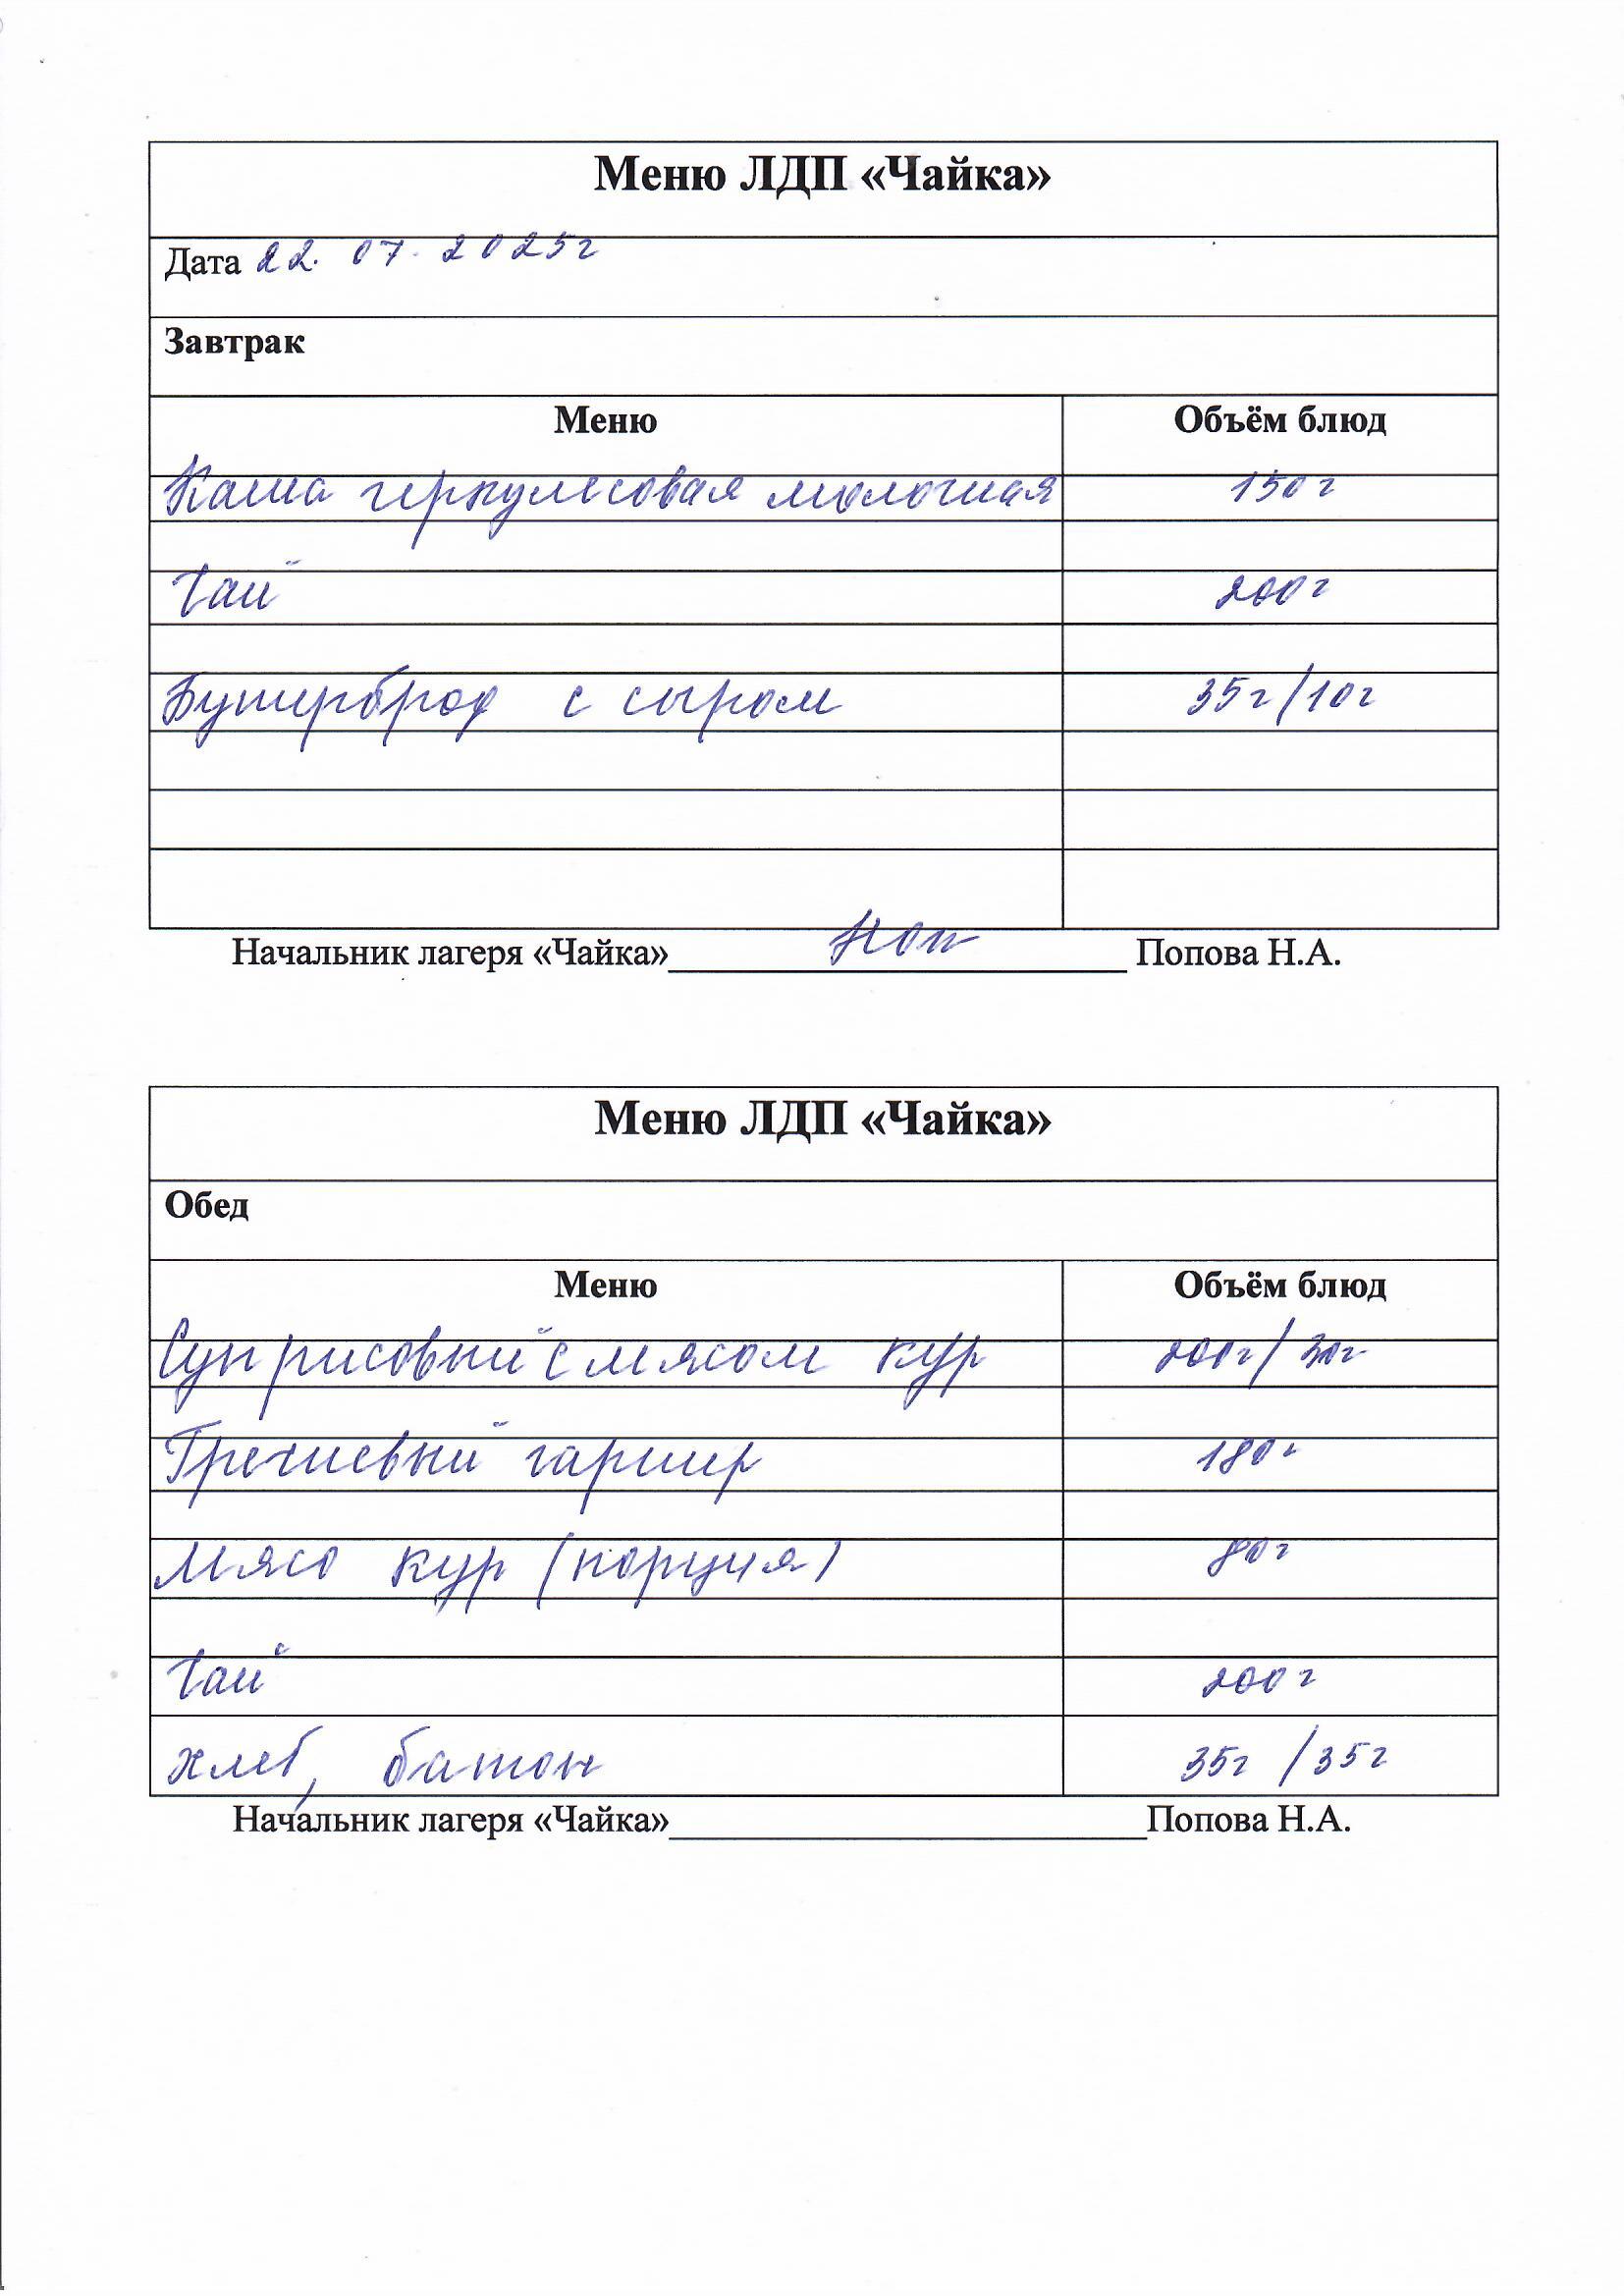 Меню ЛДП «Чайка»
Дата 22. 07. 2025г
Завтрак
Меню Объём блюд
Каша геркулесовая молочная 150г
Чай 200г
Бутерброд с сыром 35г/10г
Начальник лагеря «Чайка» Поп Попова Н.А.
Меню ЛДП «Чайка»
Обед
Меню Объём блюд
Суп рисовый с мясом кур 200г/30г
Гречневый гарнир 180г
Мясо кур (порция) 80г
Чай 200г
хлеб, батон 35г /35г
Начальник лагеря «Чайка» Попова Н.А.